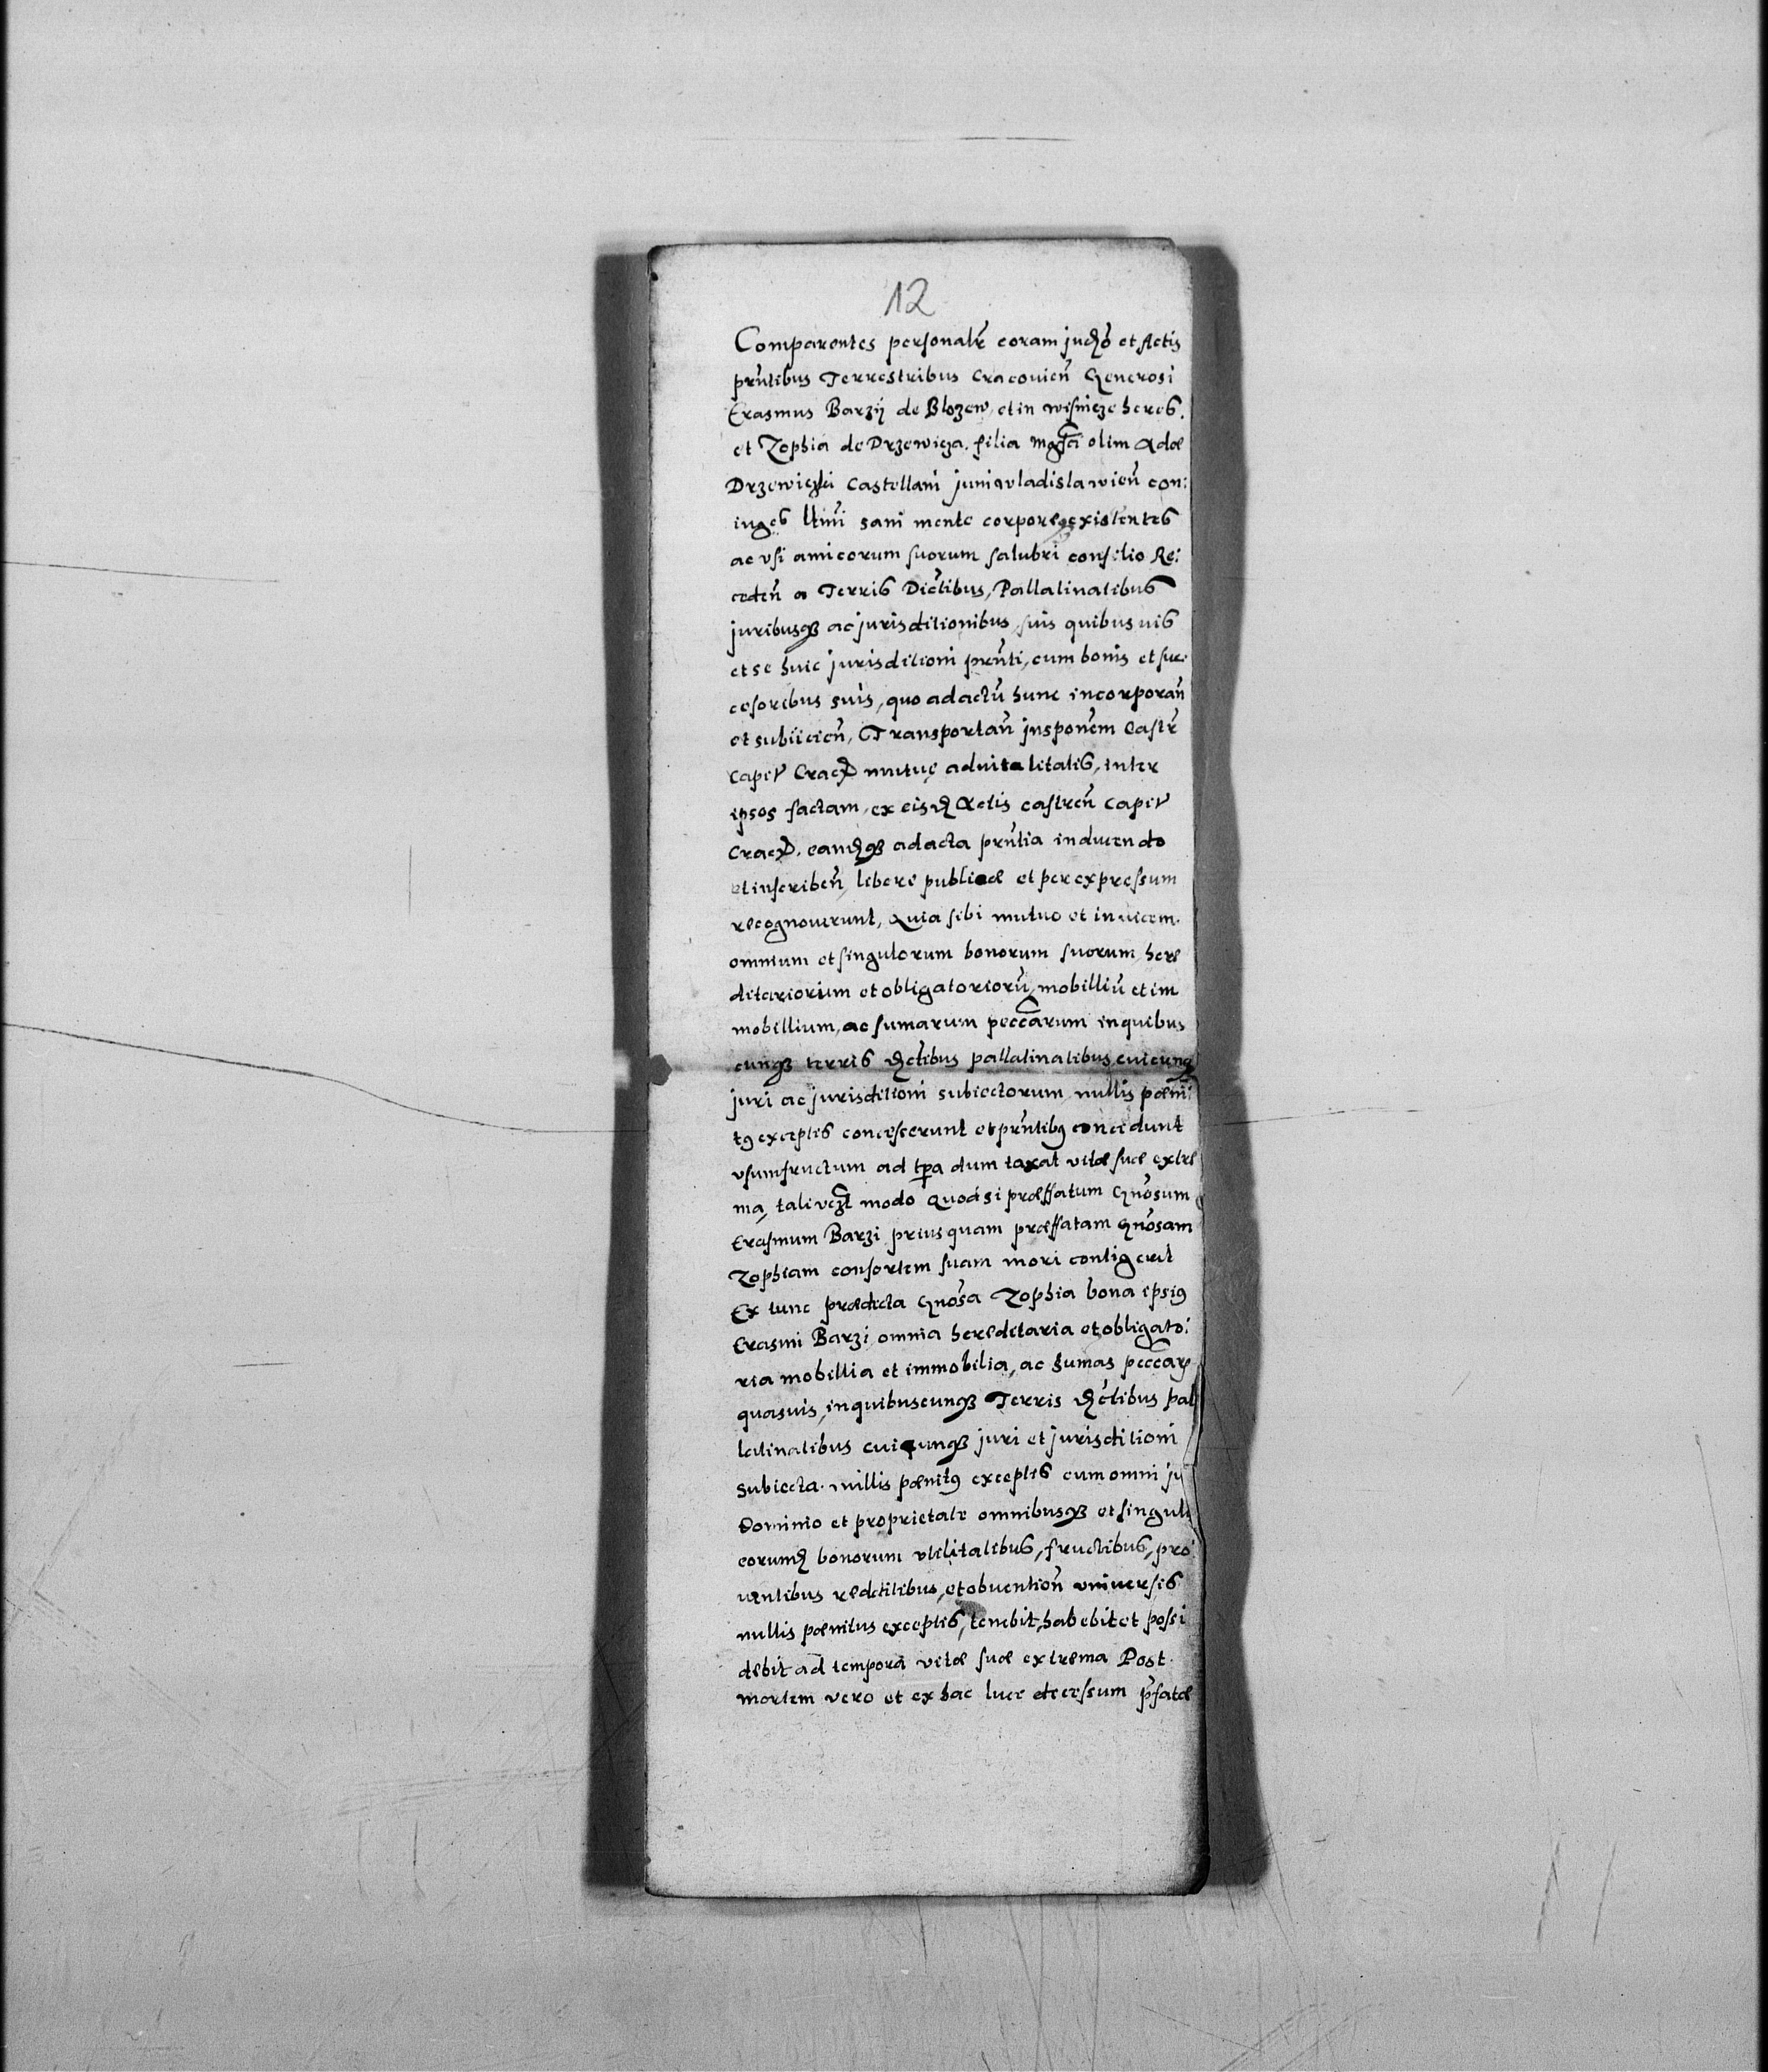 12
Comparentes personalr̃ coram judō et Actis
prñtibus Terrestribus Cracovieñ Generosi
Erasmus Barzÿ de Blozew, et in wisnieze heres.
et Zophia de Drzewicza. filia Mgfci olim Adæ
Drzewiczki Castellani juniwladislawieñ con:
iuges ltmi sani mente corporeqꝫ existentes
ac vsi amicorum suorum salubri consilio Re:
cedeñ a Terris Dictibus, Pallatinatibus
juribusqꝫ ac jurisditionibus suis quibus uis
et se huic jurisditioni prñti, cum bonis et suc:
cesoribus suis, quo ad actũ hunc incorporañ
et subiicieñ, Transportañ jnsponem Castr̃
capit̕ Crac̕ mutuę aduitalitatis, inter
ipsos factam, ex eisd Actis castreñ capit̕
Crac̕. eandqꝫ ad acta prñtia inducendo
et inscribeñ, libere publicæ et per expressum
recognouerunt, Quia sibi mutuo et inuicem.
omnium et singulorum bonorum suorum here
ditariorium et obligatoriorũ, mobilliũ et im
mobillium, ac sumarum peccarum in quibus
cunqꝫ terris dctibus pallatinatibus cuicunqꝫ
juri ac jurisditioni subiectorum nullis pæni:
tꝰ exceptis concesserunt et prñtibꝰ concedunt
vsumfructum ad tpa dum taxat vitæ suæ extre
ma, tali vczt modo Quod si præffatum Gnõsum
Erasmum Barzi prius quam præffatam Gnõsam
Zophiam consortem suam mori contigerit
Ex tunc prædicta Gnõsa Zophia bona ipsiꝰ
Erasmi Barzi omnia hereditaria et obligato:
ria mobillia et immobilia, ac sumas peccar̃
quasuis, in quibuscunqꝫ Terris dctibus pal
latinatibus cuicunqꝫ juri et jurisditioni
subiecta. nullis pænitꝰ exceptis cum omni ju
Dominio et proprietate omnibusqꝫ et singuli
eorumd bonorum vtilitatibus, fructibus, pro:
uentibus redditibus, et obuentioñ vniuersis
nullis pænitus exceptis, tenebit, habebit et possi
debit ad tempora vitæ suæ extrema Post.
mortem vero et ex hac luce decessum p̃fatæ